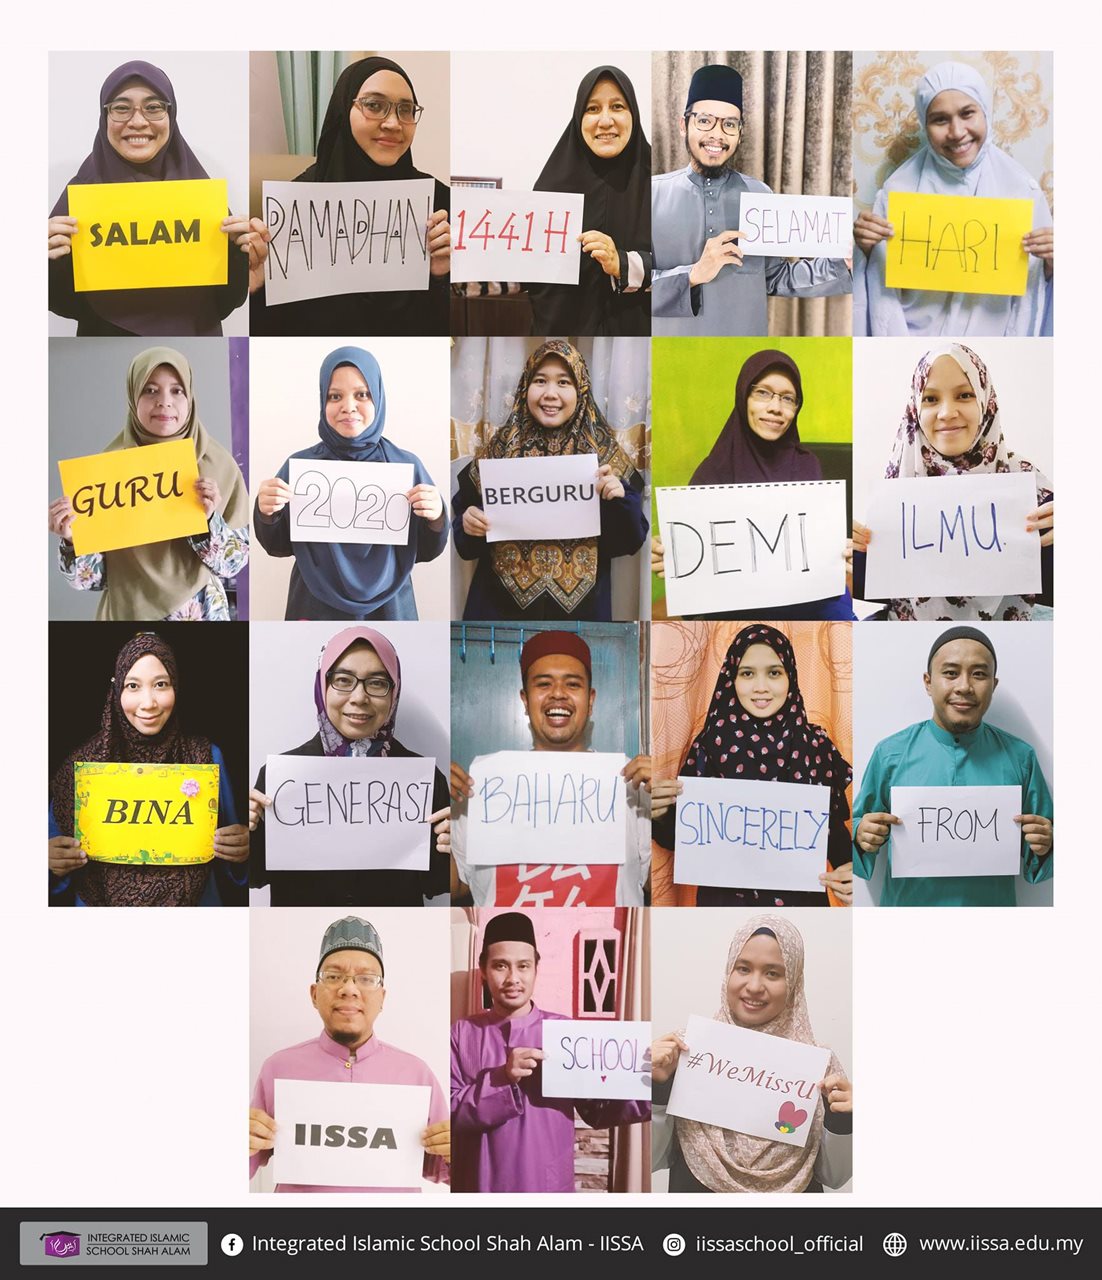 SALAM
RAMADHAN
1441H
SELAMAT
HARI
GURU
2020
BERGURU
DEMI
ILMU.
BINA
GENERASI
BAHARU
SINCERELY
FROM
IISSA
SCHOOL
#WeMissU
INTEGRATED ISLAMIC
SCHOOL SHAH ALAM
Integrated Islamic School Shah Alam - IISSA
iissaschool_official
www.iissa.edu.my